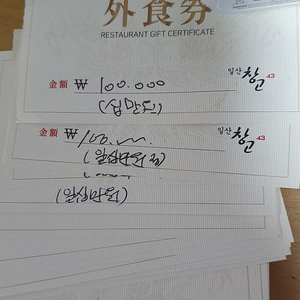 外食券
RESTAURANT GIFT CERTIFICATE
金額 ₩ 100.000
(십만원)
일산 창고 43
金額 ₩ 100.000
(일십만원정)
일산 창고 43
(일십만원)